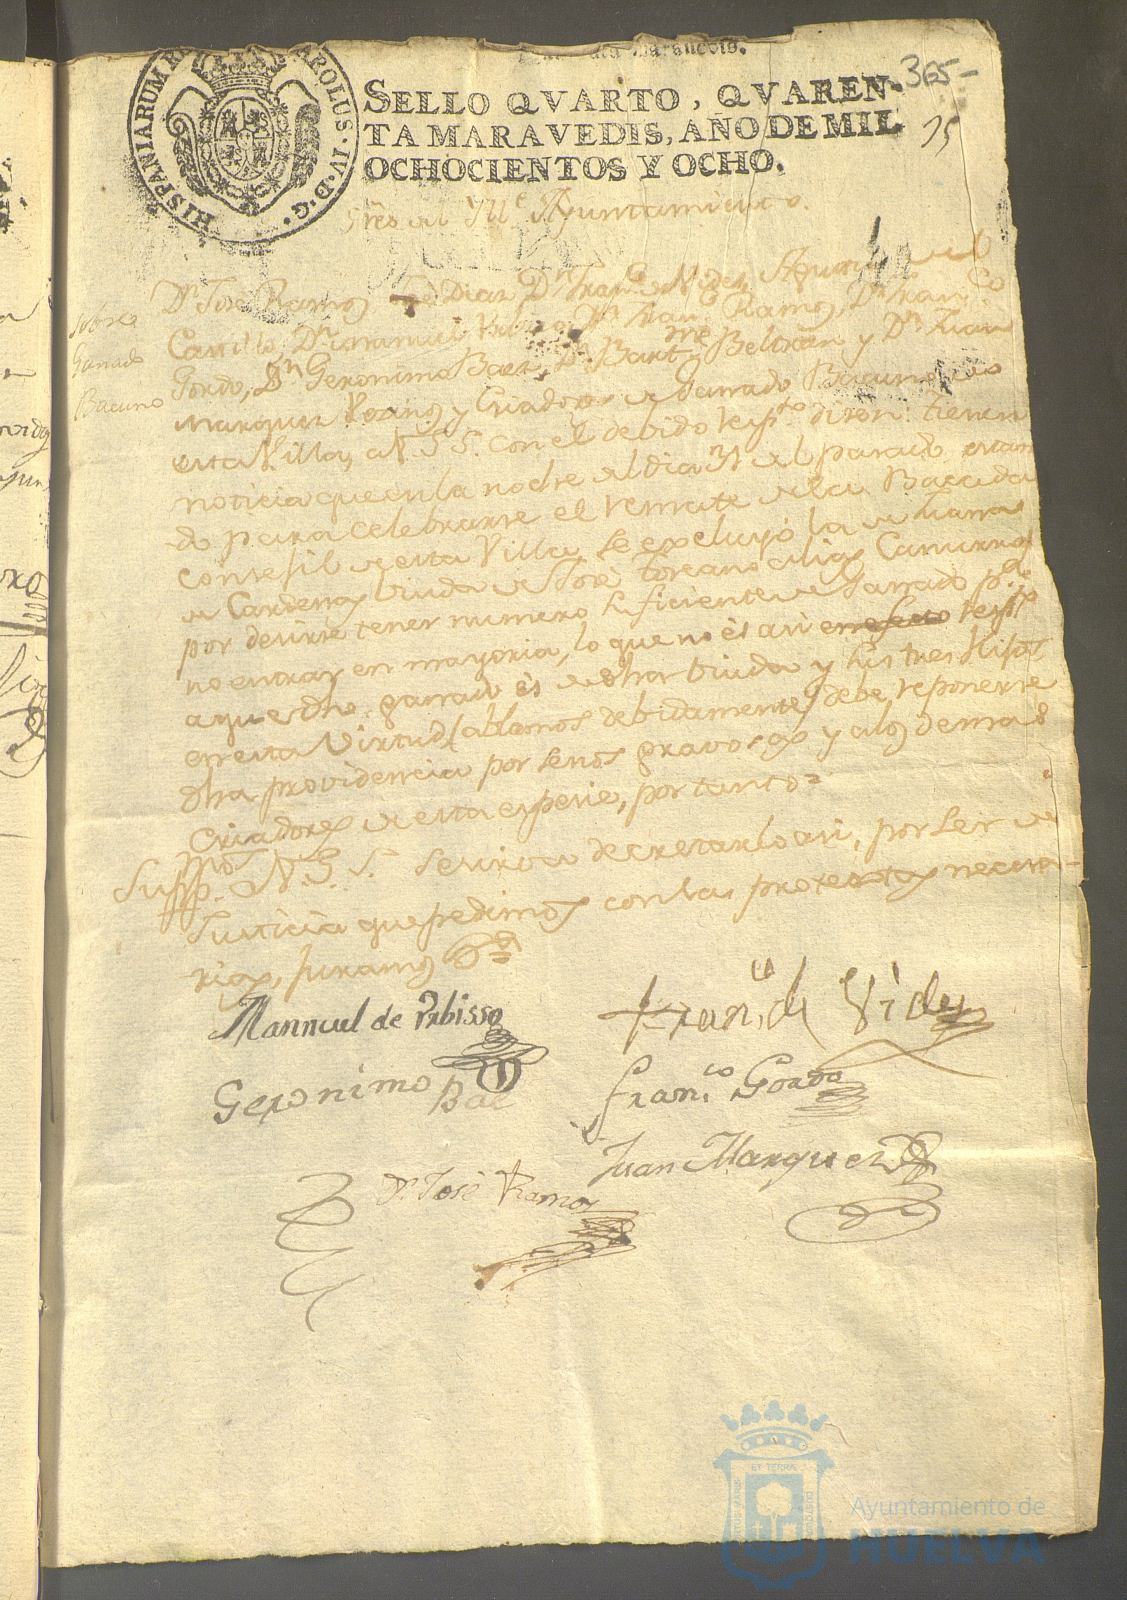 365-
15
HISPANIARUM R
CAROLUS·IV·D·G·
SELLO QVARTO, QVAREN-
TA MARAVEDIS, AÑO DE MIL
OCHOCIENTOS Y OCHO.
Sres del Ille Ayuntamiento.
sobre
Ganado
Bacuno
Dn José Ramos José Diaz Dn Franco
Carrillo Dn Manuel Dn Franco Ramos, Dn Franco
Gordo, Dn Geronimo Baez, Dn Bartme Beltran y Dn Juan
Marquez Vezinos y Criadores de Ganado Bacuno de
esta Villa, a V.S.S. con el debido respto dizen: tienen
noticia que en la noche del dia del pasado, estan
do para celebrarse el remate de la
de esta Villa, se excluyó la de Juana
de Cardenas Viuda de José Toscano alias
por desirse tener numero suficiente de Ganado pa
no entrar en mayoria, lo que no és asi en efecto respto
a que dho ganado és de dha Viuda y sus tres Hijos,
en esta Virtud (ablamos debidamente) debe reponerse
dha providencia por senos gravosa y a los demas
Criadores de esta espesie, por tanto=
Suppcamos V.S.S. se sirva decretarlo asi, por ser de
Justicia que pedimos con las protestas necesa-
rias, juramos &a
Mannuel de
Franco de Vides
Geronimo Bae
Franco Gordo
Juan Marquez
Dn José Ramos
ET TERRÆ
Ayuntamiento de
HUELVA